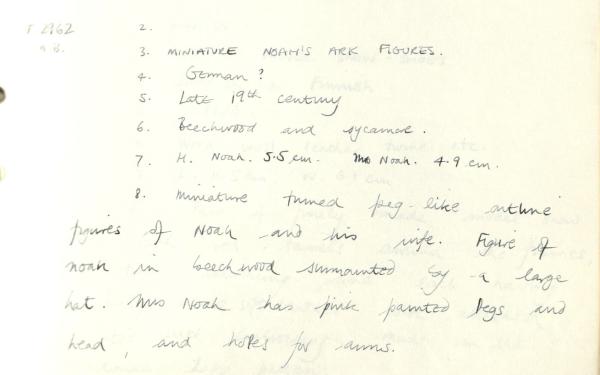 T 2962
a.B.
2.
3. MINIATURE NOAH'S ARK FIGURES.
4. German?
5. Late 19th century
6. Beechwood and sycamore.
7. H. Noah. 5.5 cm. Mrs Noah. 4.9 cm.
8. Miniature turned peg-like outline
figures of Noah and his wife. Figure of
noah in beechwood surmounted by a large
hat. Mrs Noah has pink painted legs and
head, and holes for arms.